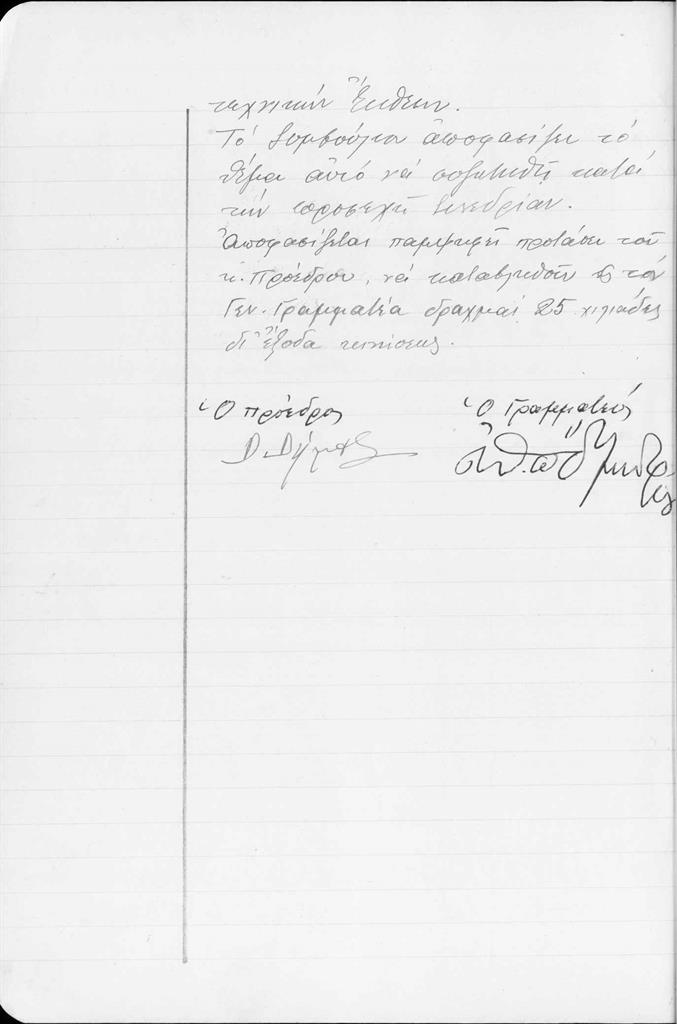 τεχνικήν Ἔκθεσιν.
Τό Συμβούλιον ἀποφασίζει τό
θέμα αὐτό νά συζητηθῇ κατά
τήν προσεχῆ Συνεδρίαν.
Ἀποφασίζεται παμψηφεί προτάσει τοῦ
κ. Προέδρου, νά καταβληθοῦν εἰς τόν
Γεν. Γραμματέα δραχμαί 25 χιλιάδες
δι' ἔξοδα κινήσεως.
Ὁ Πρόεδρος Ὁ Γραμματεύς